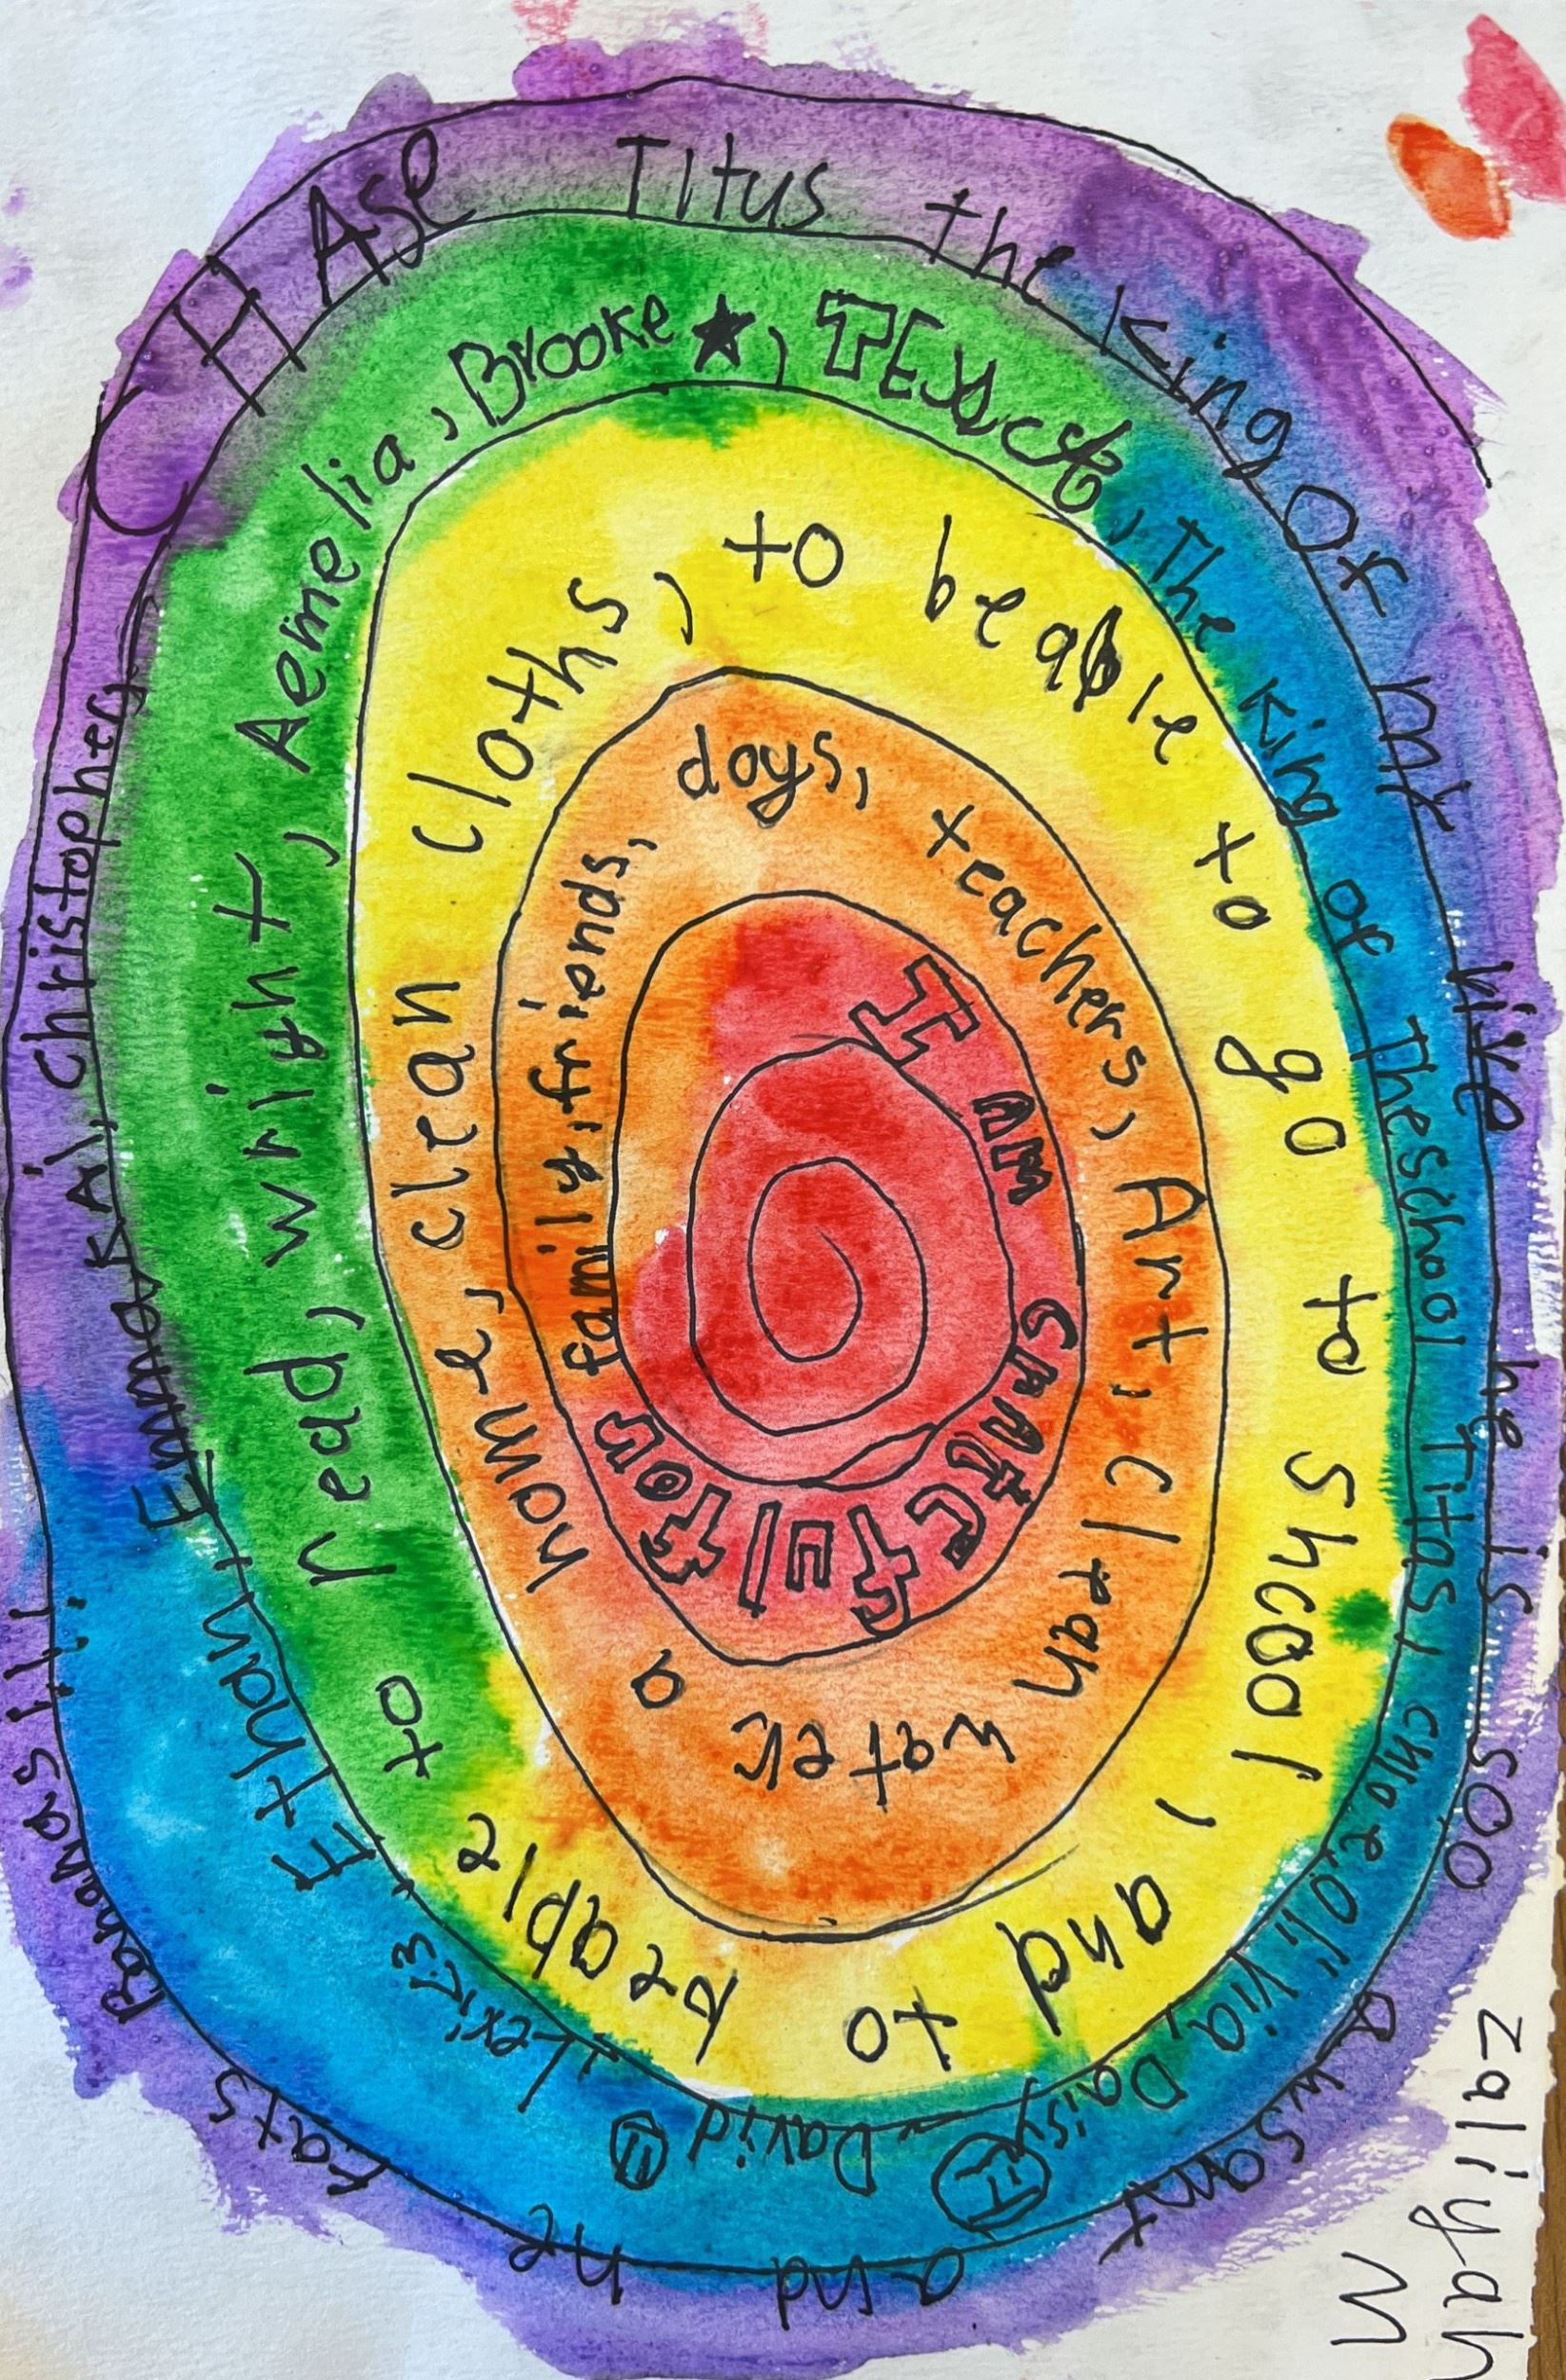 I AM GrAtEful for family, friends, dogs, teachers, Art, Clean water a home, clean cloths, to beable to go to Shcool and to beable to read, wright, Aemelia, Brooke ★, The King of The school Titas, chloe, Olivia, Daisy David Lexi <3, Ethan, Emma, KAi, Christopher, CHAse Titus the King Of my vive he is soo awsant and he Eats Bananas!!!
Zaliyah M